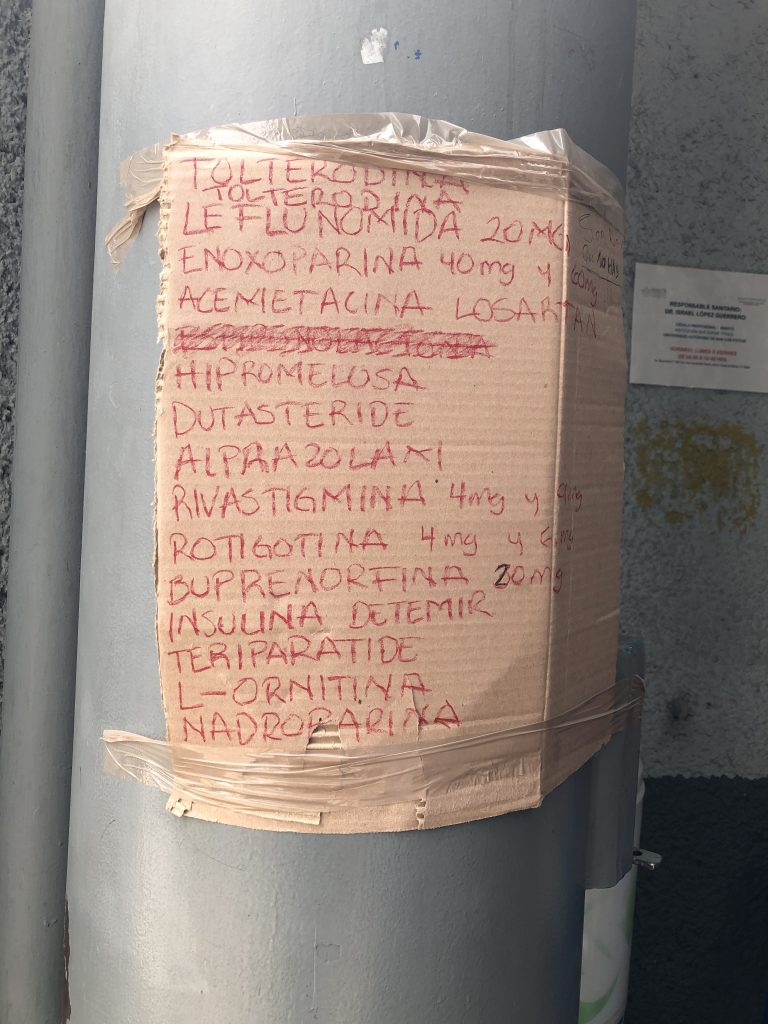 TOLTERODINA
TOLTERODINA
LEFLUNOMIDA 20MG
ENOXOPARINA 40mg y 60mg
ACEMETACINA LOSARTAN
HIPROMELOSA
DUTASTERIDE
ALPRAZOLAM
RIVASTIGMINA 4mg y 9mg
ROTIGOTINA 4mg y 6mg
BUPRENORFINA 20mg
INSULINA DETEMIR
TERIPARATIDE
L-ORNITINA
NADROPARINA
RESPONSABLE SANITARIO:
DR. ISRAEL LÓPEZ GUERRERO